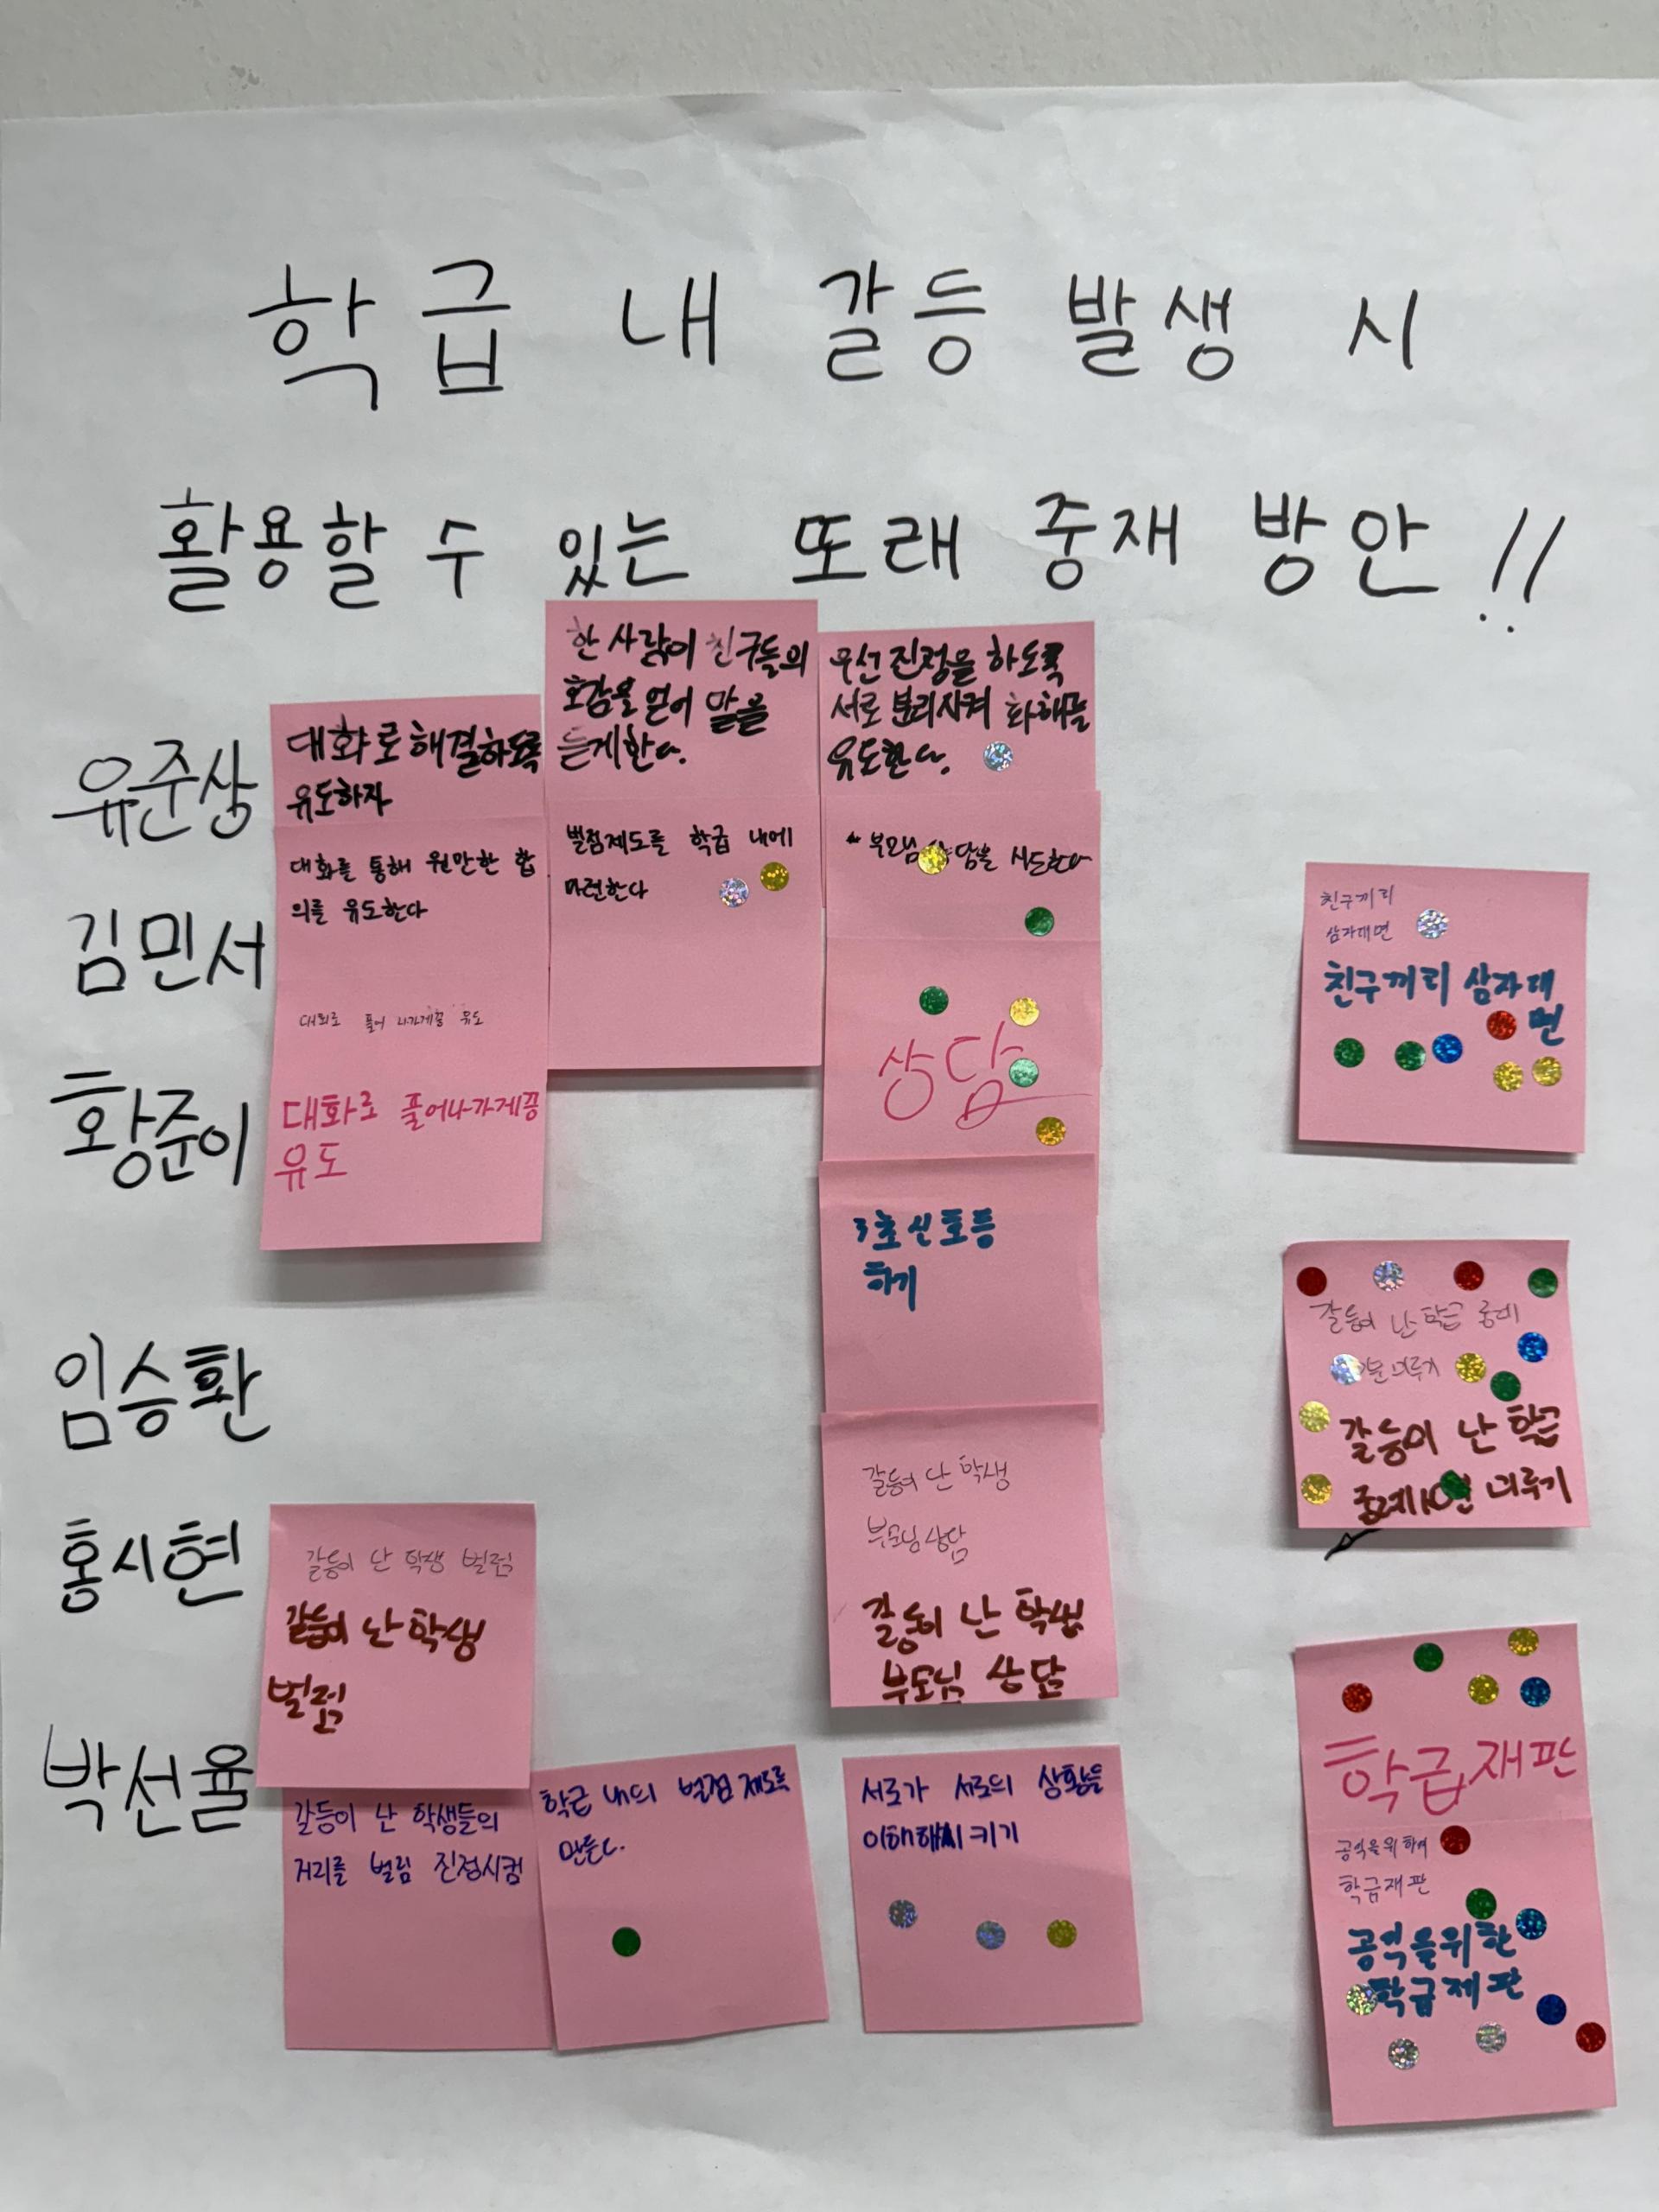 학급 내 갈등 발생 시
활용할 수 있는 또래 중재 방안 !!
유준상
김민서
황준이
임승환
홍시현
박선율
대화로 해결하도록
유도하자
대화를 통해 원만한 합
의를 유도한다
대화로 풀어 나가게끔 유도
대화로 풀어나가게끔
유도
한 사람이 친구들의
호감을 얻어 말을
듣게한다.
벌점제도를 학급 내에
마련한다
우선 진정을 하도록
서로 분리시켜 화해를
유도한다.
부모님 상담을 시도한다
상담
3초 신호등
하기
갈등이 난 학생
부모님 상담
갈등이 난 학생
부모님 상담
친구끼리
삼자대면
친구끼리 삼자대
면
갈등이 난 학급
미루기
갈등이 난 학급
미루기
갈등이 난 학생 벌점
갈등이 난 학생
벌점
갈등이 난 학생들의
거리를 벌림 진정시킴
학급 내의 벌점 제도를
만든다.
서로가 서로의 상황을
이해시키기
학급재판
공익을위하여
학급재판
공익을위한
학급재판